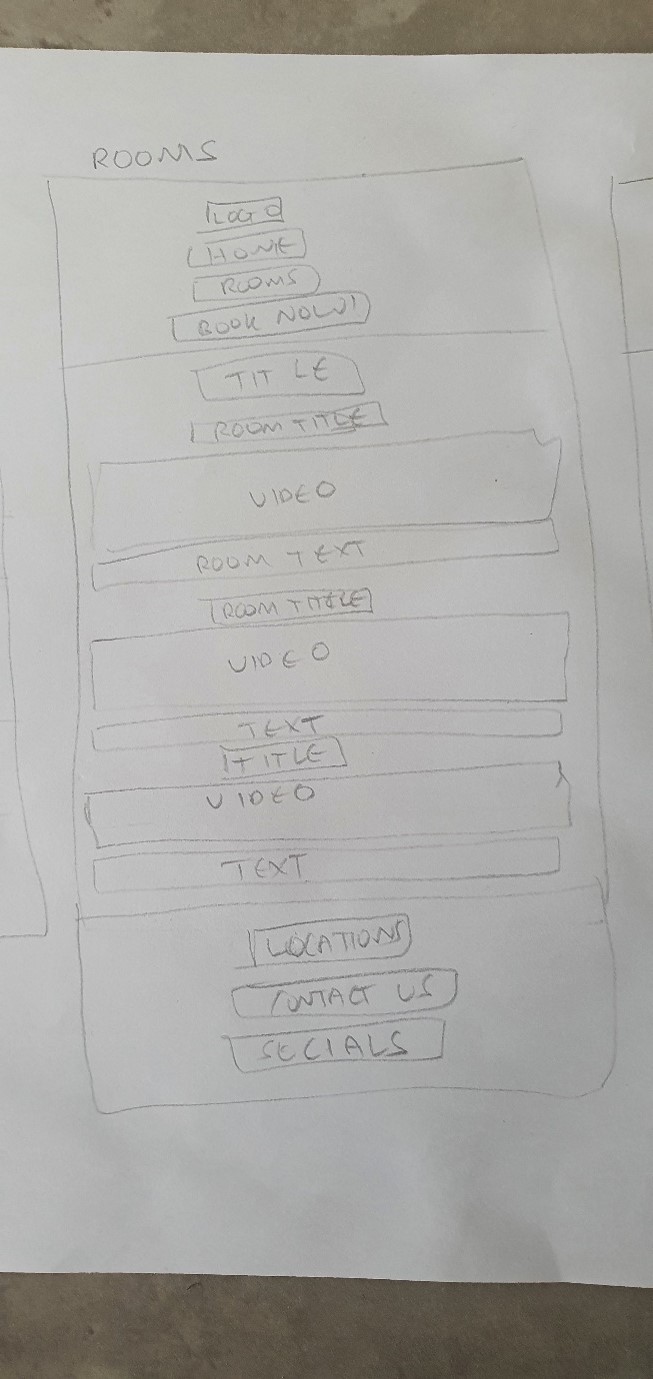 ROOMS
LOGO
HOME
ROOMS
BOOK NOW!
TITLE
ROOM TITLE
VIDEO
ROOM TEXT
ROOM TITLE
VIDEO
TEXT
TITLE
VIDEO
TEXT
LOCATIONS
CONTACT US
SOCIALS